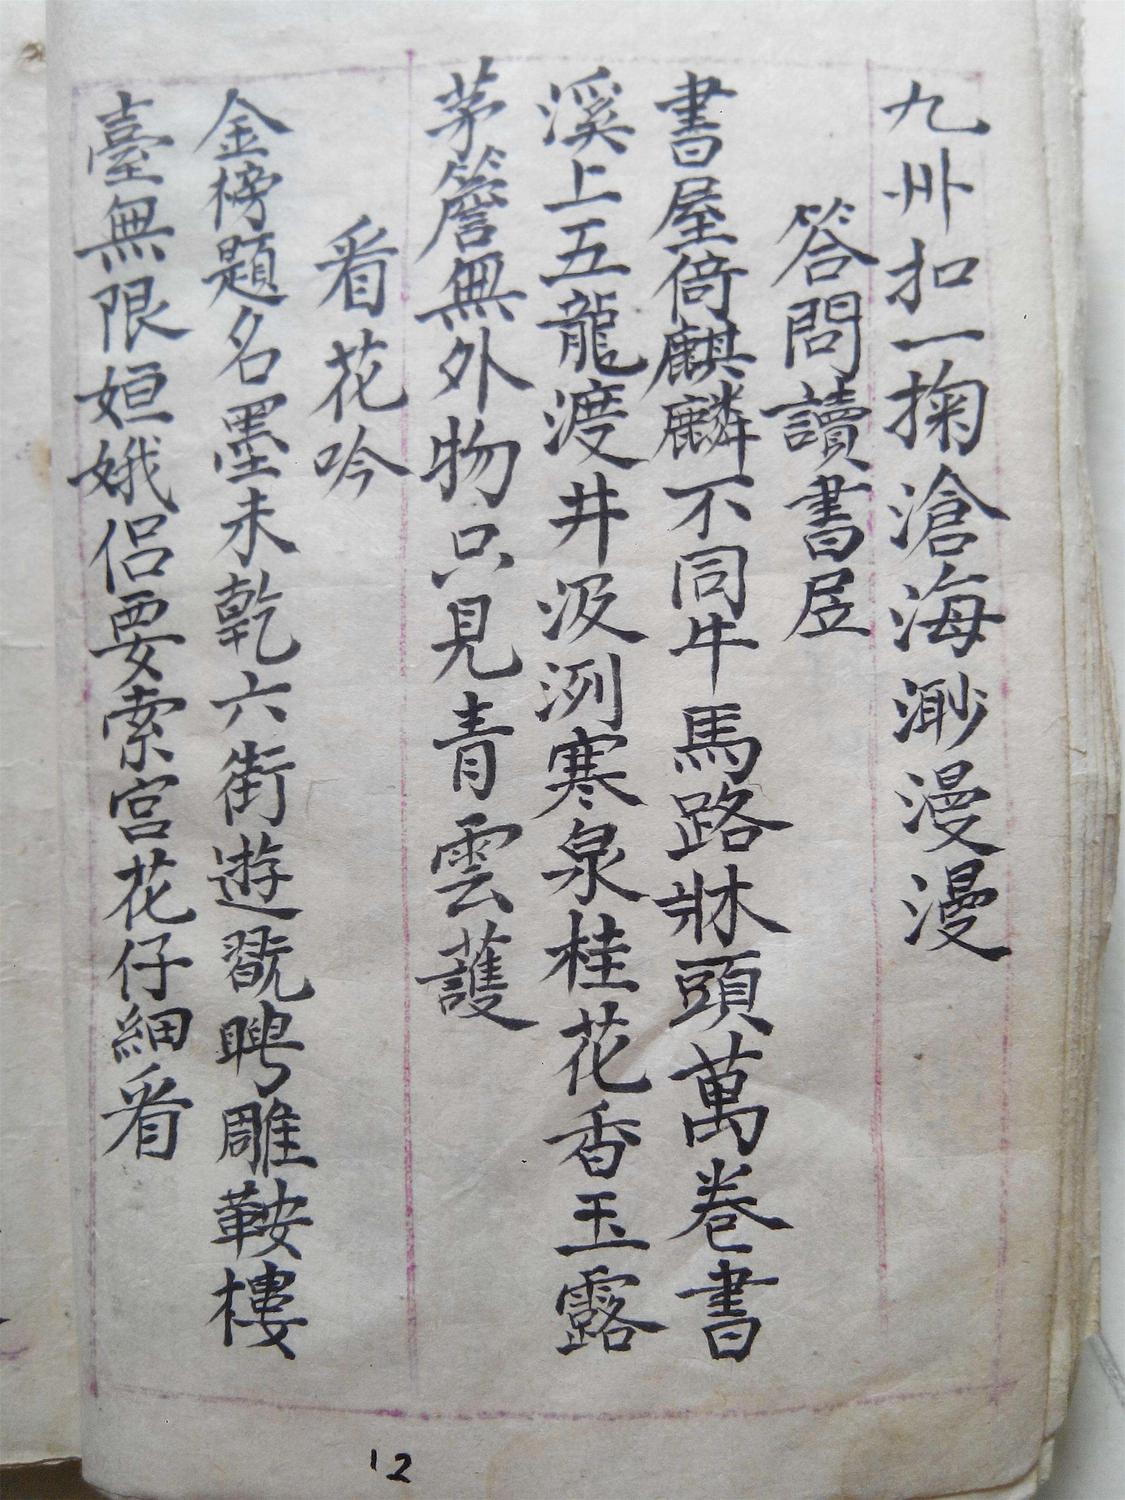 九州扣一掬滄海渺漫漫
答問讀書屋
書屋倚麒麟不同牛馬路牀頭萬卷書
溪上五龍渡井汲冽寒泉桂花香玉露
茅簷無外物只見青雲護
看花吟
金榜題名墨未乾六街遊翫聘雕鞍樓
臺無限姮娥侶要索宮花仔細看
12